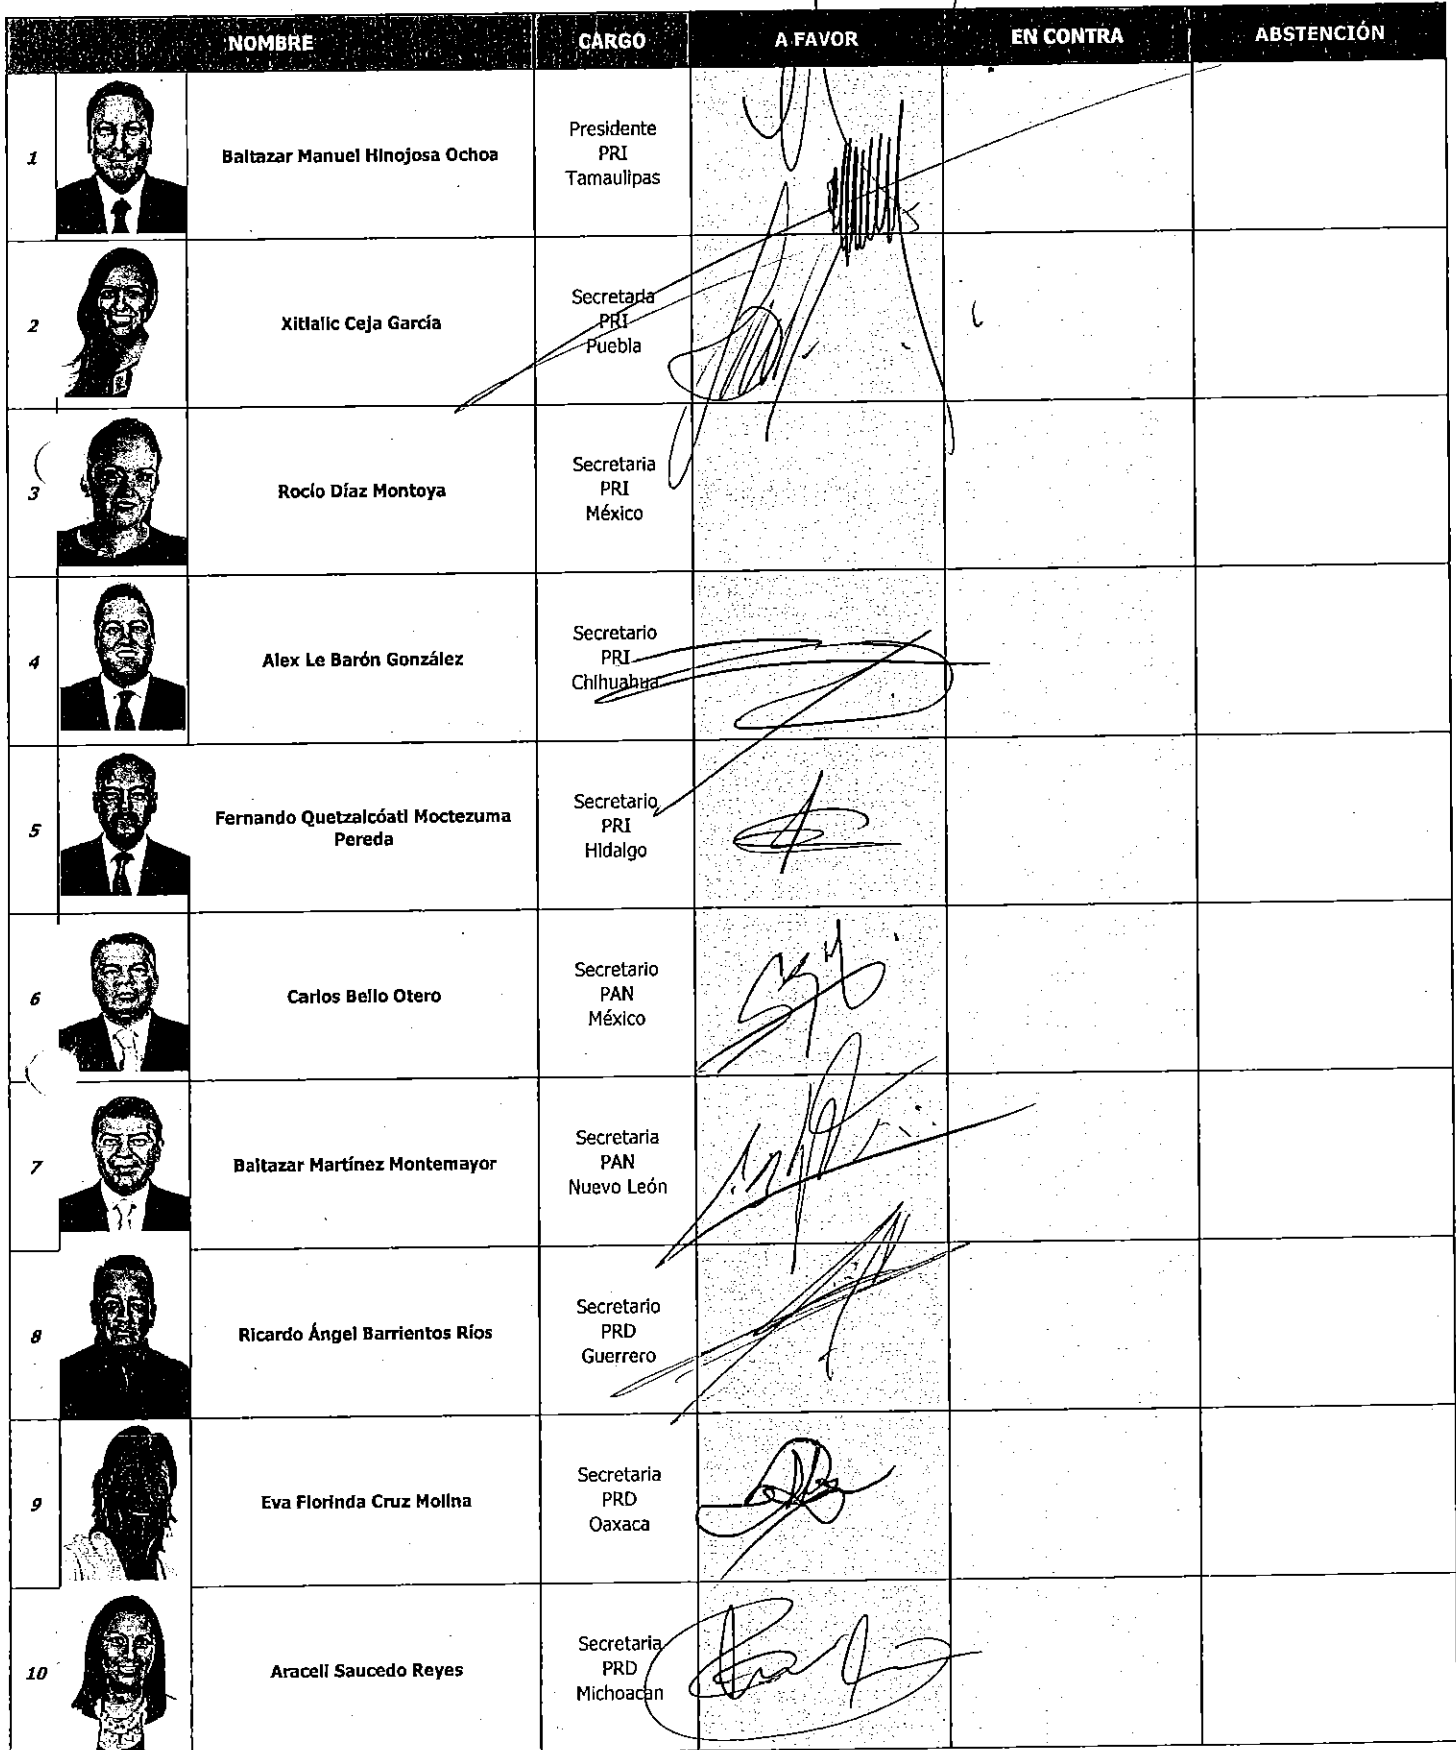 NOMBRE CARGO A FAVOR EN CONTRA ABSTENCIÓN
1 Baltazar Manuel Hinojosa Ochoa
Presidente
PRI
Tamaulipas
2 Xitlalic Ceja García
Secretaria
PRI
Puebla
3 Rocío Díaz Montoya
Secretaria
PRI
México
4 Alex Le Barón González
Secretario
PRI
Chihuahua
5 Fernando Quetzalcóatl Moctezuma
Pereda
Secretario
PRI
Hidalgo
6 Carlos Bello Otero
Secretario
PAN
México
7 Baltazar Martínez Montemayor
Secretaria
PAN
Nuevo León
8 Ricardo Ángel Barrientos Ríos
Secretario
PRD
Guerrero
9 Eva Florinda Cruz Molina
Secretaria
PRD
Oaxaca
10 Araceli Saucedo Reyes
Secretaria
PRD
Michoacan